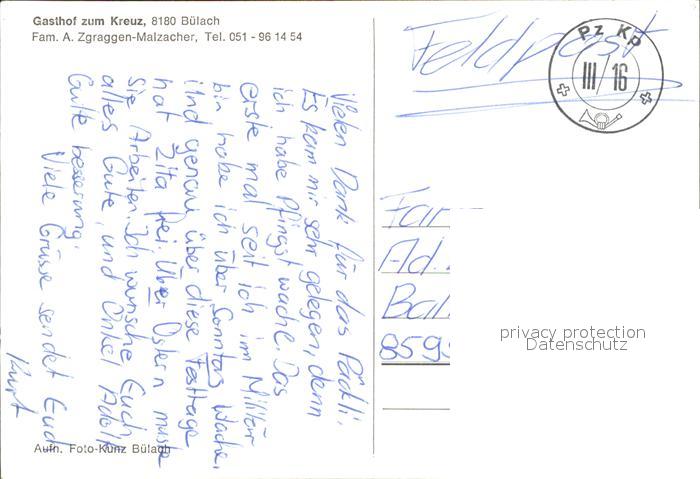 Gasthof zum Kreuz, 8180 Bülach
Fam. A. Zgraggen-Malzacher, Tel. 051 - 96 14 54
Feldpost
Pz Kp
III/16
Vielen Dank für das Päckli.
Es kam mir sehr gelegen, denn
ich habe Pfingstwache. Das
erste mal seit ich im Militär
bin habe ich über Sonntag Wache,
Und genau über diese Festtage
hat Zita frei. Über Ostern musste
Sie Arbeiten. Ich wünsche Euch
alles Gute, und Onkel Adolf
Gute besserung.
Viele Grüsse sendet Euch
Kurt
Fam
Ad.
Ba
859
privacy protection
Datenschutz
Aufn. Foto-Kunz Bülach